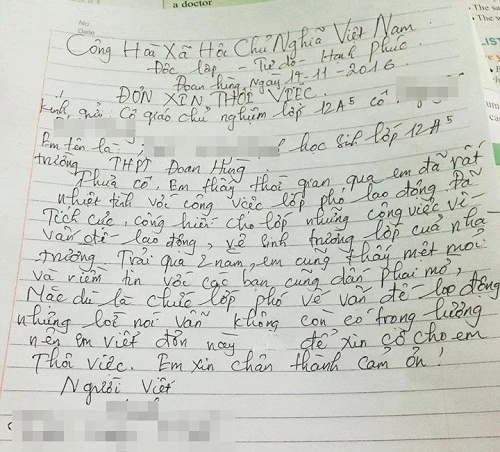 a doctor
No
Date
Cộng Hoà Xã Hội Chủ Nghĩa Việt Nam
Độc lập - Tự do - Hạnh Phúc
Đoan hùng, Ngày 14-11-2016
ĐƠN XIN THÔI VIỆC
Kính gửi: Cô giáo chủ nghiệm lớp 12A5 cô
Em tên là: học sinh lớp 12A5
trường THPT Đoan Hùng
Thưa cô, Em thấy thời gian qua em đã rất
nhiệt tình với công việc lớp phó lao động. Đã
Tích cực, cống hiến cho lớp những công việc về
vấn đề lao động, vệ sinh trường lớp của nhà
trường. Trải qua 2 năm, em cũng thấy mệt mỏi
và niềm tin với các bạn cũng dần phai mờ,
Mặc dù là chức lớp phó về vấn đề lao động
nhưng lời nói vẫn không còn có trọng lượng
nên em viết đơn này để xin cô cho em
Thôi việc. Em xin chân thành cảm ơn!
Người viết
The sa
The
LIS